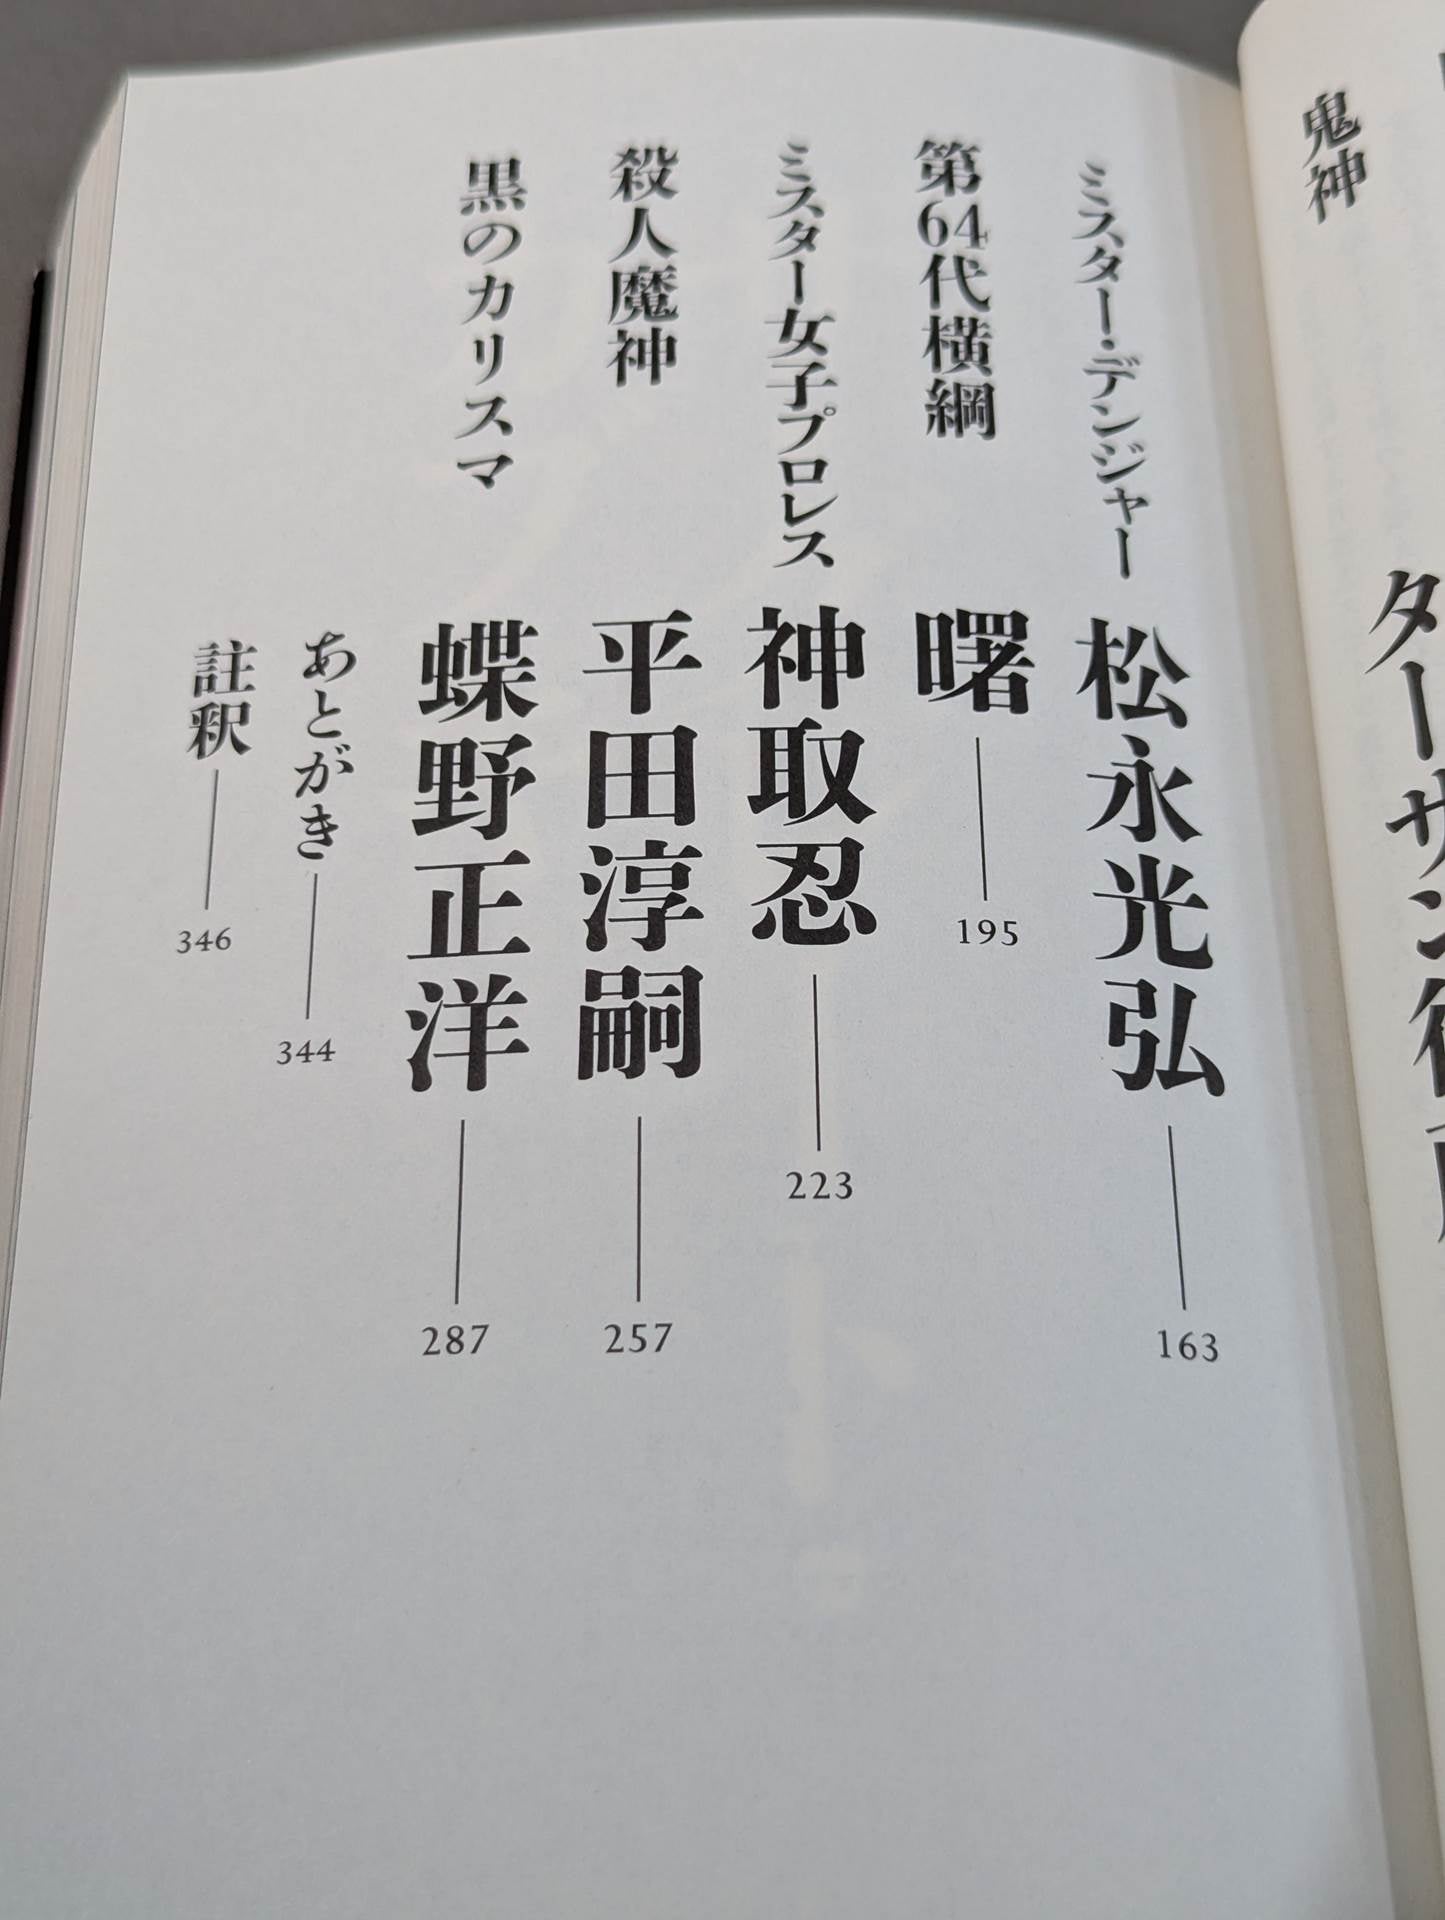 鬼神
ターザン後藤
ミスター・デンジャー 松永光弘 163
第64代横綱 曙 195
ミスター女子プロレス 神取忍 223
殺人魔神 平田淳嗣 257
黒のカリスマ 蝶野正洋 287
あとがき 344
註釈 346